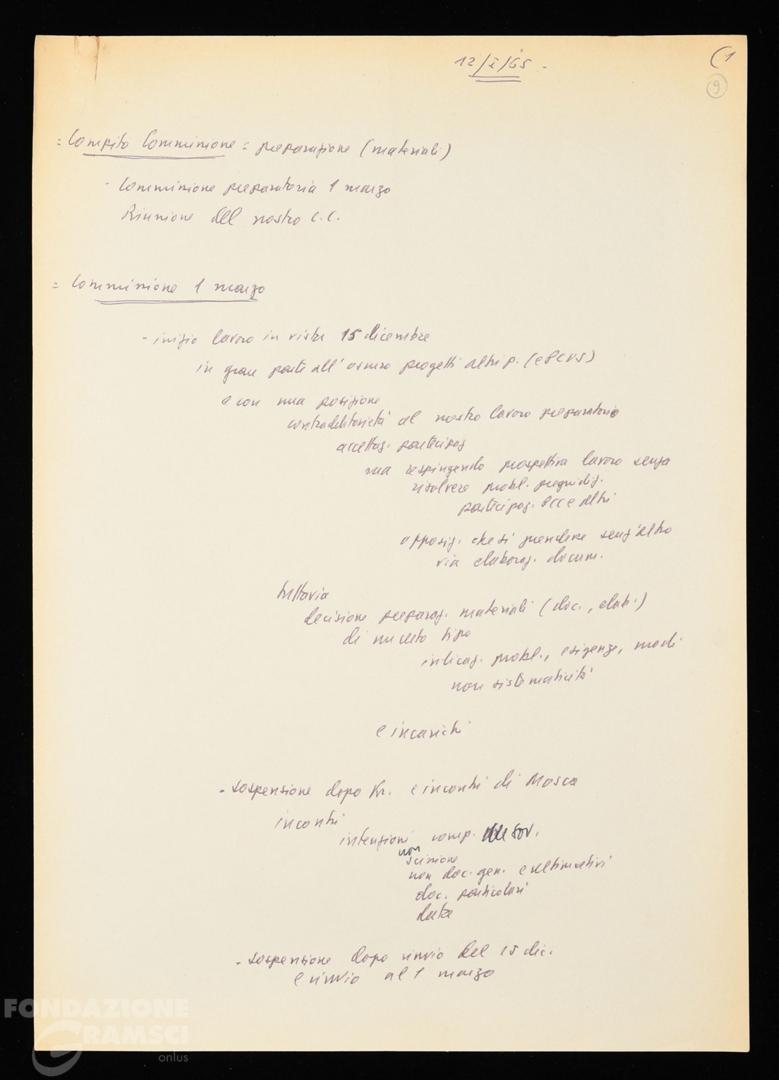 12/I/65 -
(1
9
= Compito Commissione = preparazione (materiali)
- Commissione preparatoria 1 marzo
Riunione del nostro C.C.
= Commissione 1 marzo
- inizio lavoro in vista 15 dicembre
in gran parte all'oscuro progetti altri p. (e PCUS)
e con una posizione
contraddittorietà al nostro lavoro preparatorio
accettaz. partecipaz
ma respingendo prospettiva lavoro senza
risolvere probl. pregiudiz.
partecipaz. PCC e altri
opposiz. che si prendesse senz'altro
via elaboraz. docum.
tuttavia
decisione preparaz. materiali (doc., elab.)
di nuovo tipo
indicaz. probl., esigenze, modi
non sistematicità
e incarichi
- sospensione dopo Kr. e incontri di Mosca
incontri
intenzioni comp. sov.
non scissione
non doc. gen. e ultimativi
doc. particolari
data
- sospensione dopo rinvio del 15 dic.
e rinvio al 1 marzo
FONDAZIONE
GRAMSCI
onlus